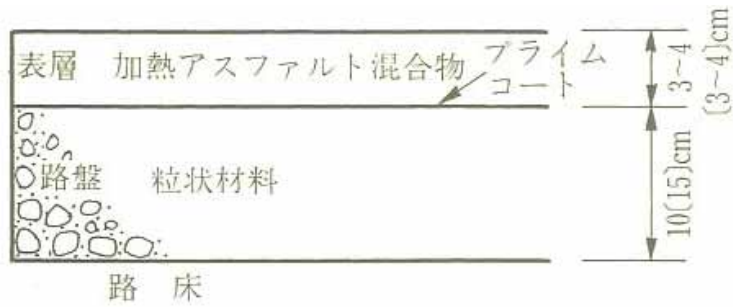 表層 加熱アスファルト混合物
プライム
コート
3~4
[3~4]cm
路盤 粒状材料
10[15]cm
路床